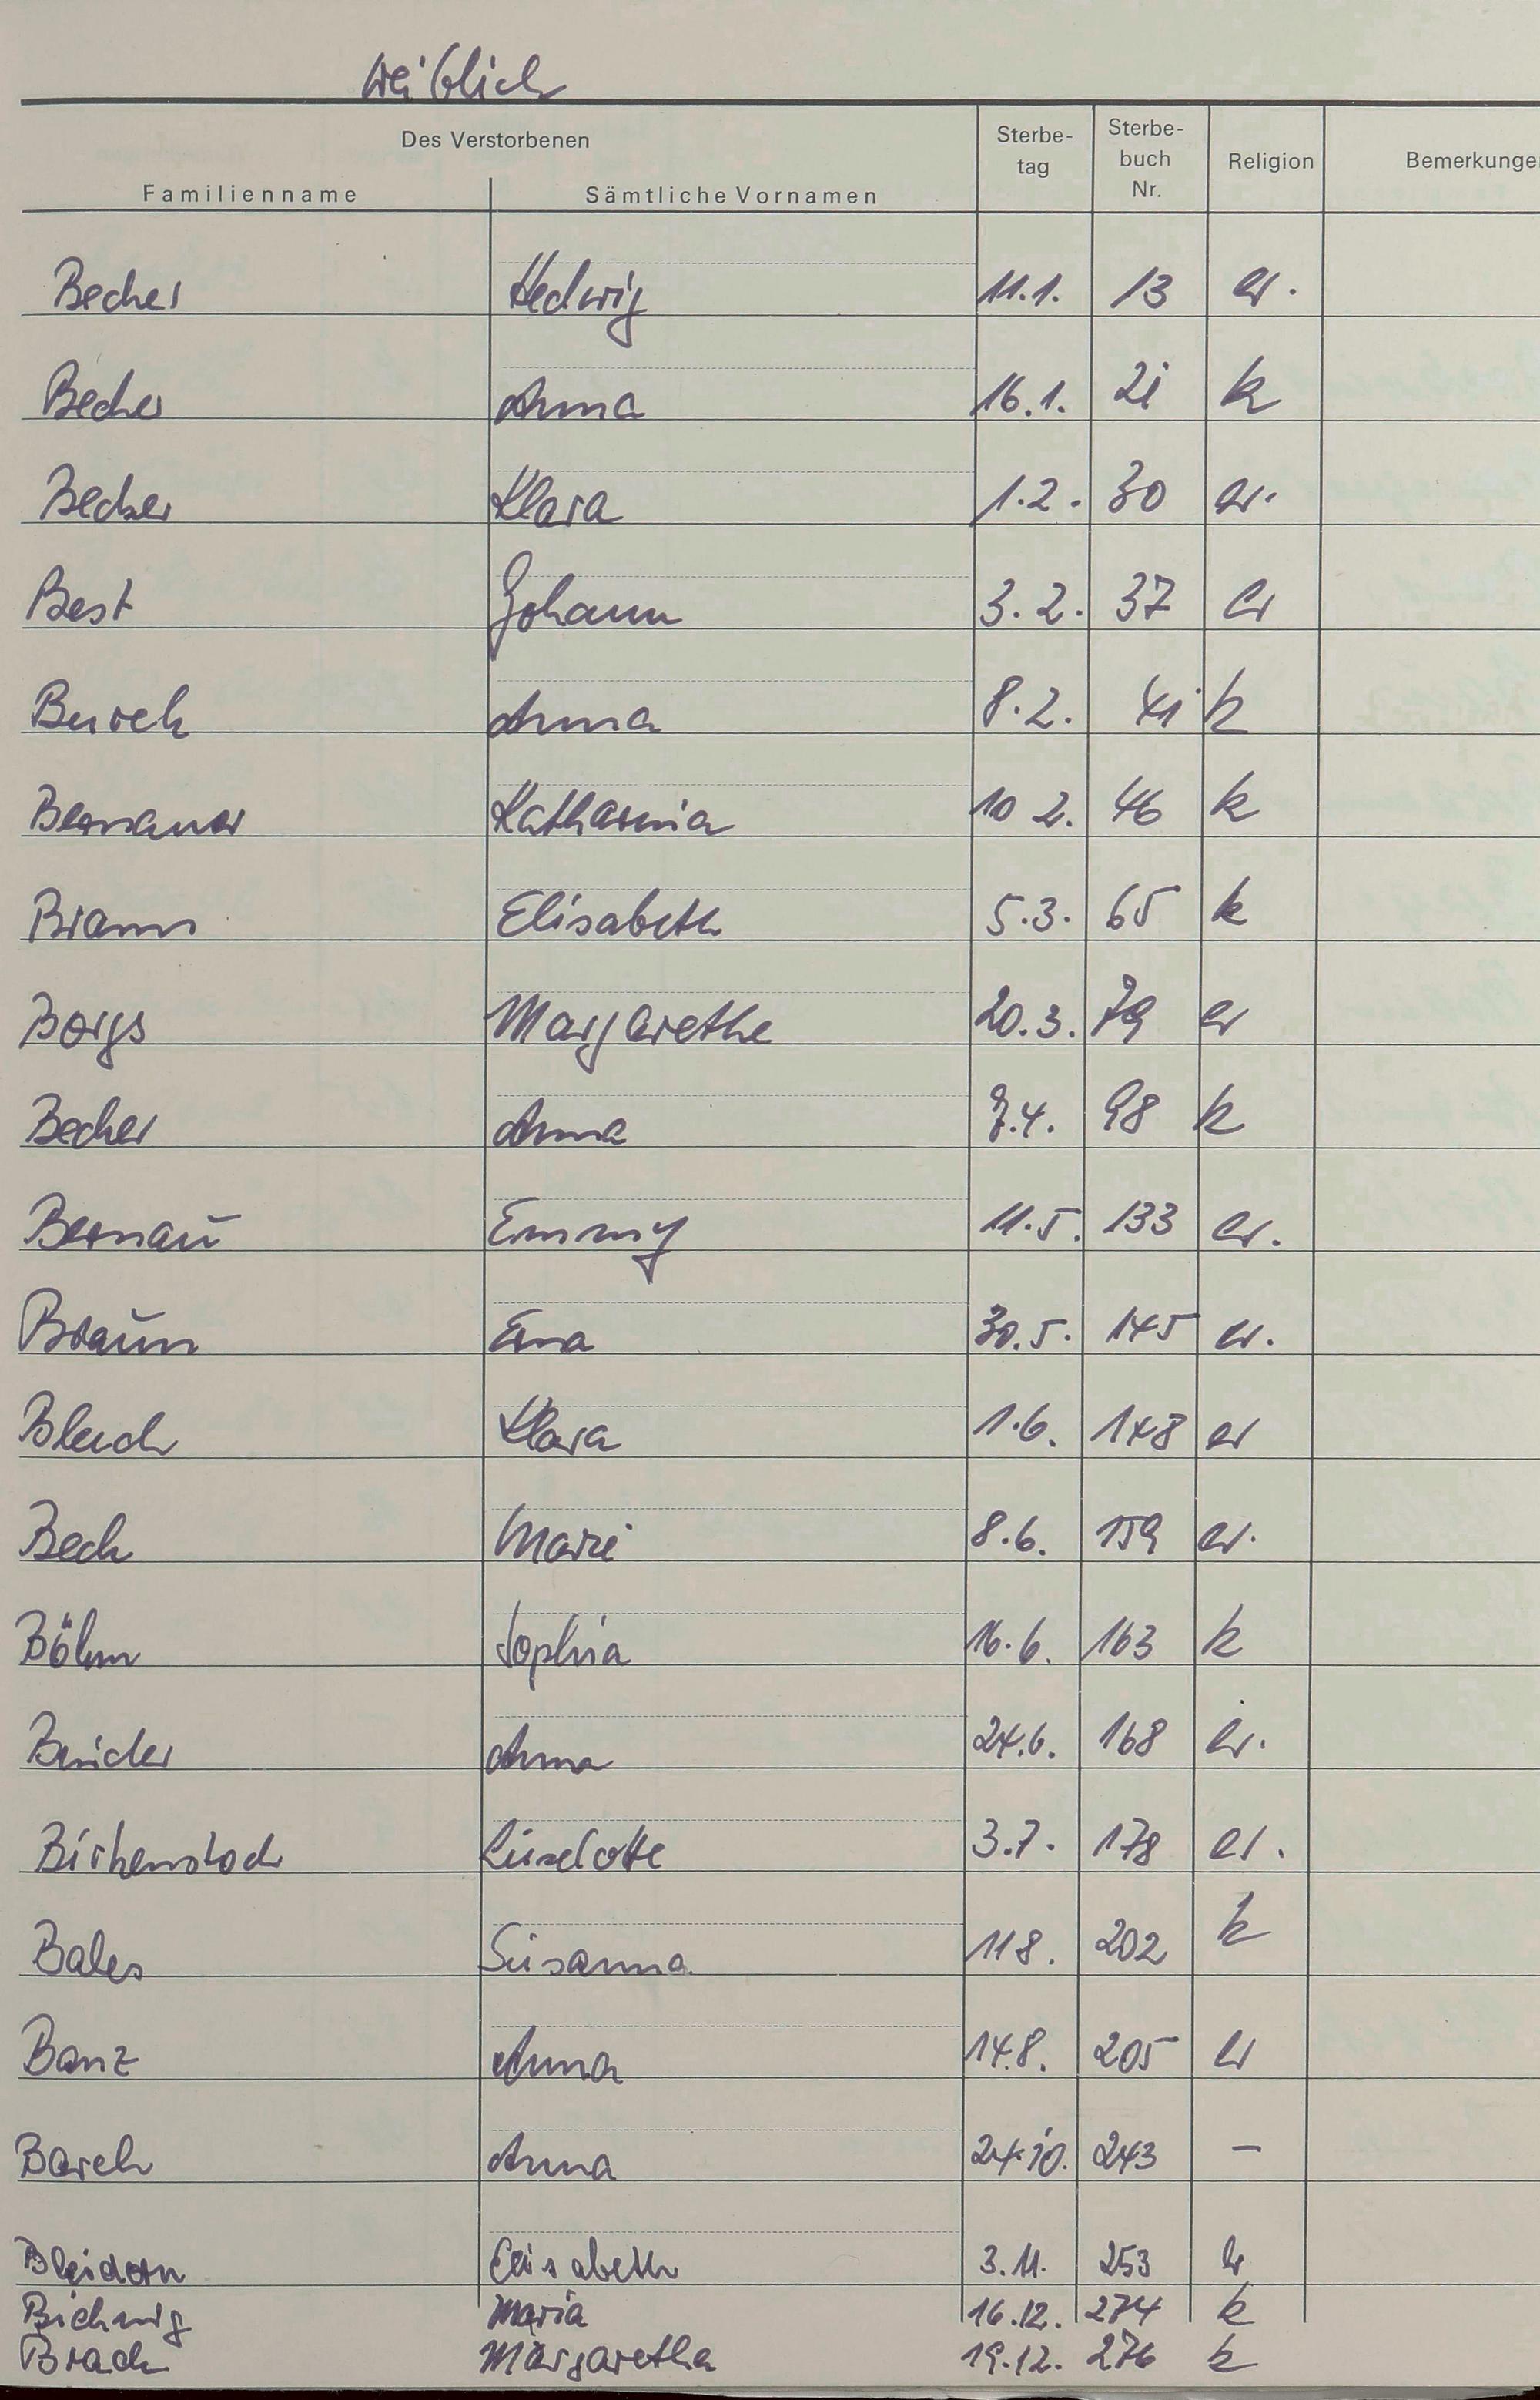 weiblich
Des Verstorbenen Sterbe- Sterbe-
tag buch Religion Bemerkunge
Familienname Sämtliche Vornamen Nr.
Becker Hedwig 11.1. 13 ev.
Becker Anna 16.1. 21 k
Becker Klara 1.2. 30 ev.
Best Johann 3.2. 37 ev
Busch Anna 8.2. 41 k
Bernauer Katharina 10 2. 46 k
Braun Elisabeth 5.3. 65 k
Borgs Margarethe 20.3. 79 ev
Becker Anna 7.4. 98 k
Bernau Emmy 11.5. 133 ev.
Braun Erna 30.5. 145 ev.
Bleich Klara 1.6. 148 ev
Beck Marie 8.6. 159 ev.
Böhm Sophia 16.6. 163 k
Anna 24.6. 168 ev.
Birkenstock Liselotte 3.7. 178 ev.
Bales Susanna 118. 202 k
Banz Anna 14.8. 205 ev
Barch Anna 24.10. 243 –
Bleidorn Elisabeth 3.11. 253
Maria 16.12. 274 k
Brack Margaretha 19.12. 276 k